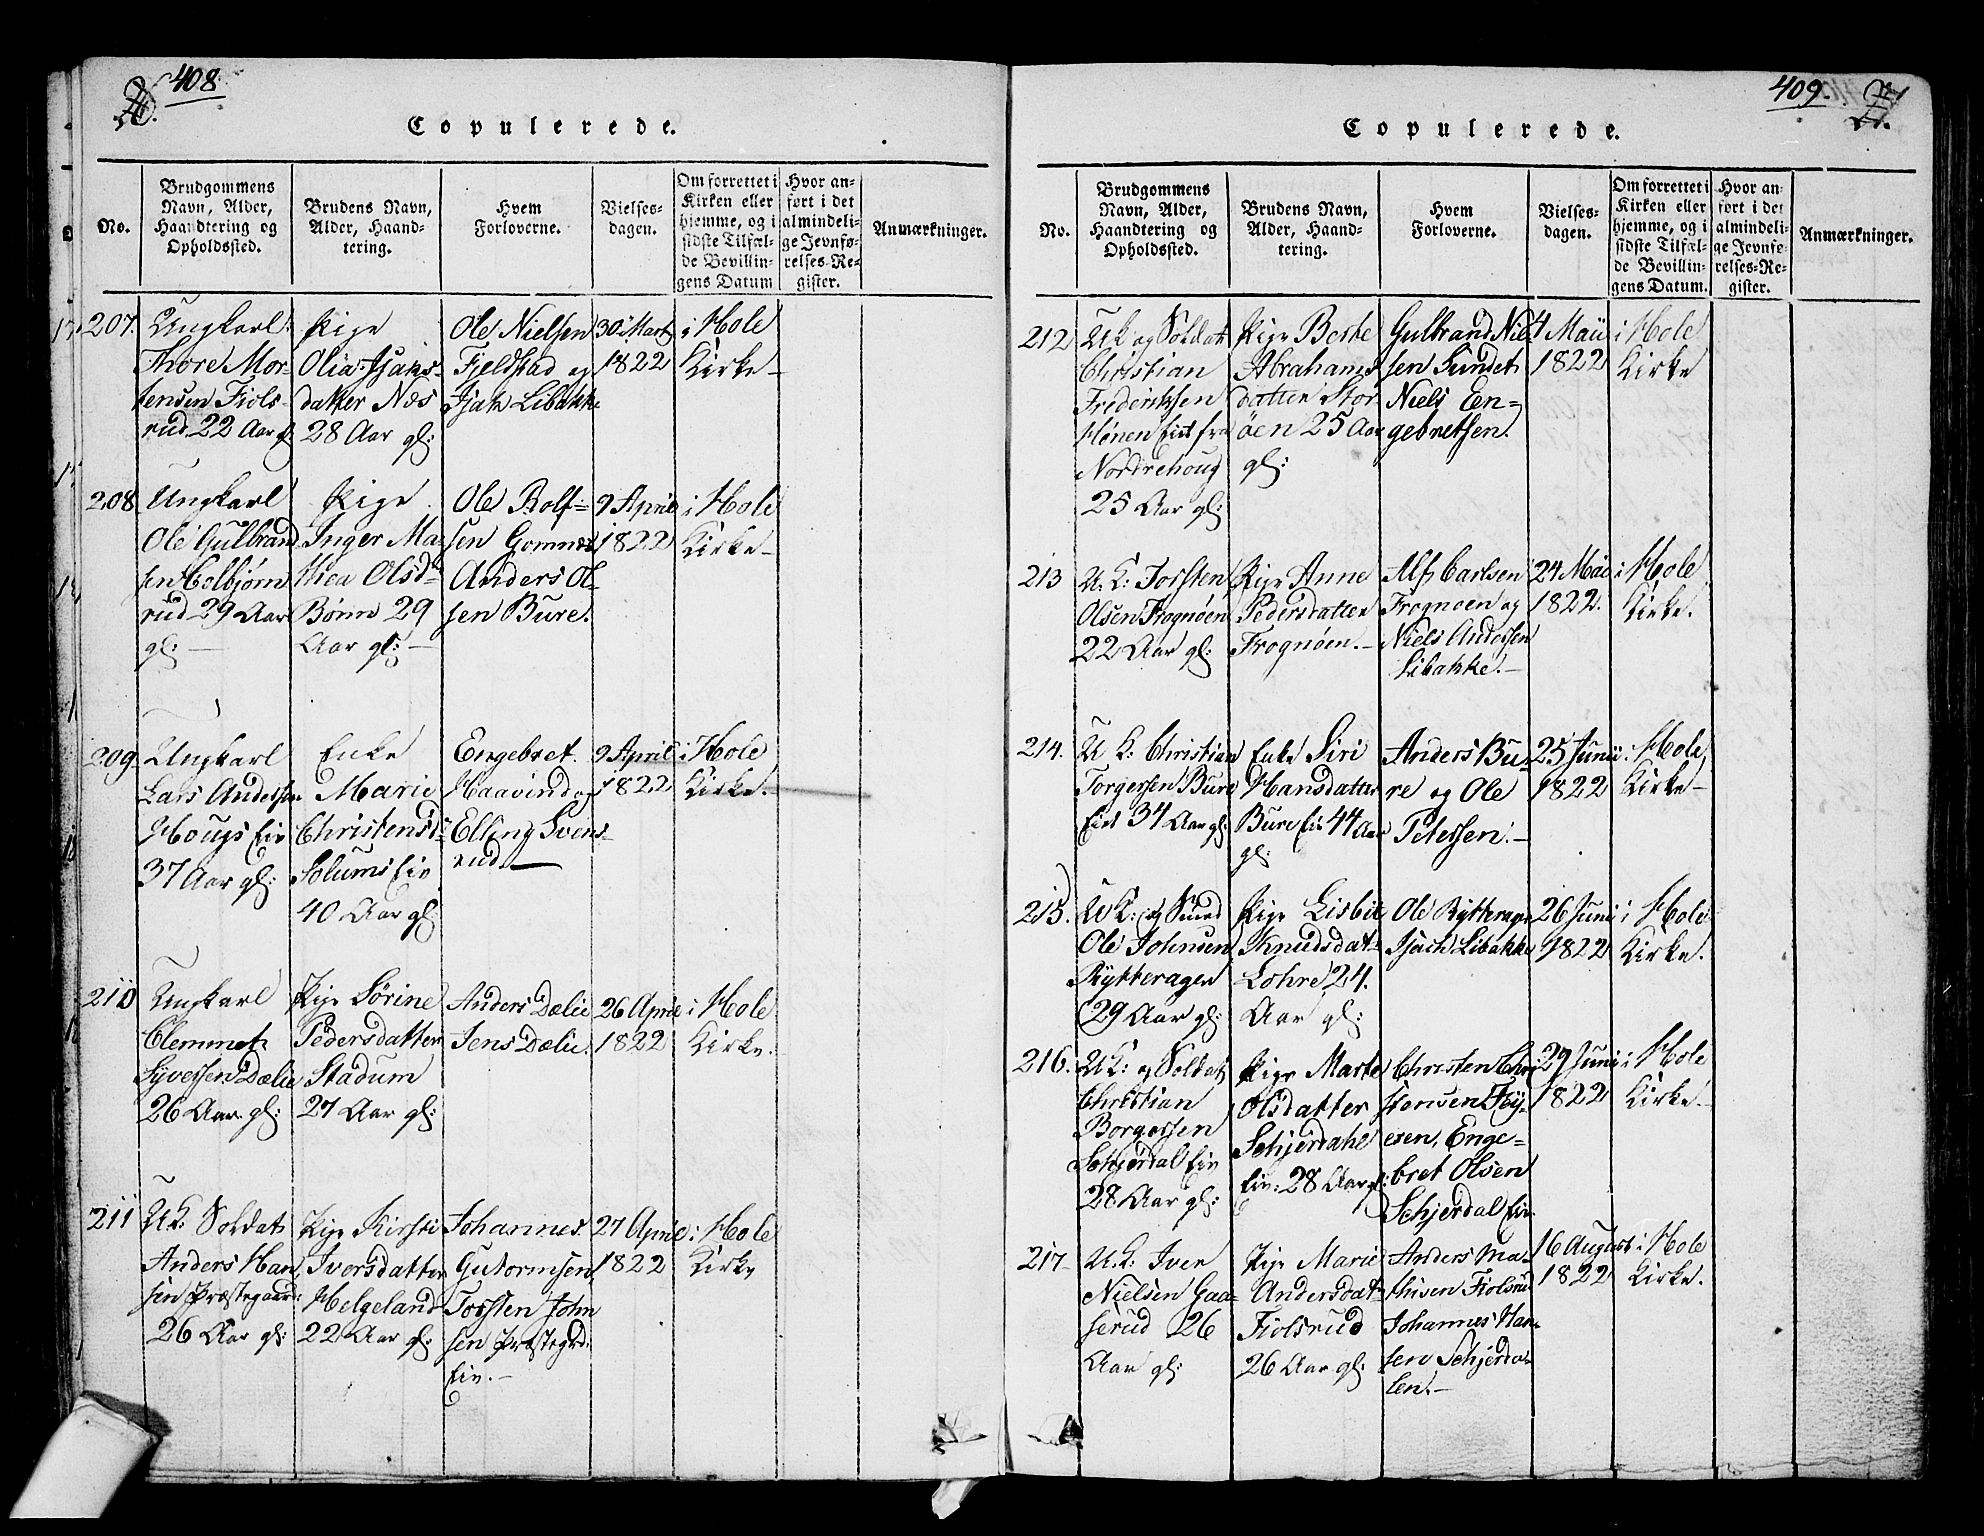 408.
26.
Copulerede.
No.
Brudgommens
Navn, Alder,
Haandtering og
Opholdssted.
Brudens Navn,
Alder, Haand-
tering.
Hvem
Forloverne.
Vielses-
dagen.
Om forrettet i
Kirken eller
hjemme, og i
sidste Tilfæl-
de Bevillin-
gens Datum
Hvor an-
ført i det
almindeli-
ge Jevnfø-
relses-Re-
gister.
Anmærkninger.
207.
Ungkarl
Thore Mor-
tensen Fiols-
rud 22 Aar gl:
Pige
Olia Isaks-
datter Næs
28 Aar gl:
Ole Nielsen
Fjeldstad og
Isak Libakke
30 Marts
1822
i Hole
Kirke
208
Ungkarl
Ole Gulbrand
sen Colbjørn
rud 29 Aar
gl:
Pige
Inger Ma-
thea Olsd:
Bønn 29
Aar gl:
Ole Rolf-
sen Gomnæs
Anders Ol-
sen Bure.
9 April
1822
i Hole
Kirke
209.
Ungkarl
Lars Andersen
Hougs Eie
37 Aar gl:
Enke
Marie
Christensd:
Solums Eie
40 Aar gl:
Engebret
Haavind og
Elling Svens-
rud
9 April
1822
i Hole
Kirke.
210
Ungkarl
Clemmet
Syversen Dælie
26 Aar gl:
Pige Sørine
Pedersdatter
Stadum
27 Aar gl:
Anders Dælie
Jens Dælie.
26 April
1822
i Hole
Kirke.
211
UK: Soldat
Anders Han
sen Præstegaard:
26 Aar gl:
Pige Kirsti
Iversdatter
Helgeland
22 Aar gl:
Johannes
Gutormsen
Torsten John
sen Præstegrd:
Eie.
27 April
1822
i Hole
Kirke
409.
27.
Copulerede.
No.
Brudgommens
Navn, Alder,
Haandtering og
Opholdssted.
Brudens Navn,
Alder, Haand-
tering.
Hvem
Forloverne.
Vielses-
dagen.
Om forrettet i
Kirken eller
hjemme, og i
sidste Tilfæl-
de Bevillin-
gens Datum.
Hvor an-
ført i det
almindeli-
ge Jevnfø-
relses-Re-
gister.
Anmærkninger.
212
UK og Soldat
Christian
Frederiksen
Hønen Eiet fra
Nordrehoug
25 Aar gl:
Pige Berte
Abrahams
datter Stor
øen 25 Aar
gl:
Gulbrand Niel
sen Sundet
Niels En-
gebretsen.
4 Maii
1822
i Hole
Kirke
213
U.K: Torsten
Olsen Frognøen
22 Aar gl:
Pige Anne
Pedersdatter
Frognøen.
Alf Carlsen
Frognoen og
Niels Andersen
Libakke.
24 Mai
1822.
i Hole
Kirke.
214.
U K: Christian
Torgersen Bure
Eiet 34 Aar gl:
Enke Siri
Hansdatter
Bure Eie 44 Aar
gl:
Anders Bu-
re og Ole
Petersen.
25 Junii
1822
i Hole
Kirke
215.
UK: og Smed
Ole Johnsen
Rytteragen
29 Aar gl:
Pige Lisbie
Knudsdat-
Lohre 24.
Aar gl:
Ole Rytterager
Isach Libakke
26 Juni
1822
i Hole
Kirke.
216.
UK: og Soldat
Christian
Borgersen
Schjerdal Eie
28 Aar gl:
Pige Marte
Olsdatter
Schjerdahl
Eie: 28 Aar gl:
Christen Chri
stensen
Enge-
bret Olsen
Schjerdal Eie
29 Juni
1822
i Hole
Kirke.
217
U.K: Iver
Nielsen Gaa-
serud 26
Aar gl:
Pige Marie
Andersdat-
Fiolsrud
26 Aar gl:
Anders Ma-
thisen Fiolsrud
Johannes Han-
sen Schjerda-
len.
16 August
1822
i Hole
Kirke.